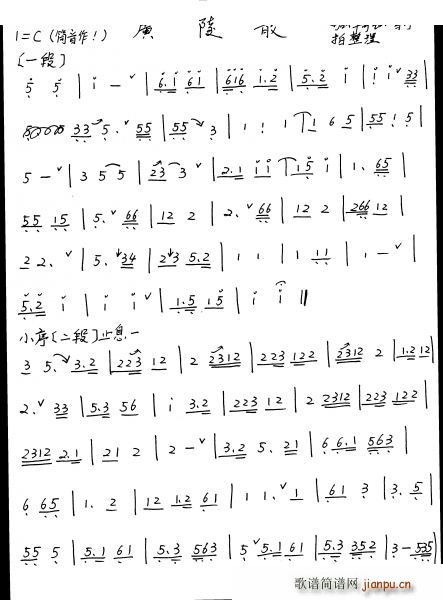 1=C (筒音作1) 廣 陵 散
拍整理
(一段)
5 5 | i - ˅ | 6.i 6i | 6i6 i.2 | 5.2 i | i i ˅ 33 |
33 5. ˅ 55 | 55 3 | 1 1 | 1 1 | 6 5 | 55 1 5 |
5 - ˅ | 3 5 5 | 23 3 ˅ | 2.1 i i | i5 i | 1. 65 |
55 15 | 5. ˅ 66 | 12 2 | 2. ˅ 66 | 12 2 | 266 12 |
2 2. ˅ | 5. 34 | 2 3 5.2 | 1 1 | 1 11 | 1 - ˅ |
5.2 i | i i ˅ | 1.5 15 | i i ‖
小序(二段)止息一
3 5. 3.2 | 223 12 | 2 2312 | 223 122 | 2312 2 | 1.2 12 |
2. ˅ 33 | 5.3 56 | i 3.2 | 223 12 | 2 2312 | 223 122 |
2312 2.1 | 21 2 | 2 - ˅ | 3.2 5. 21 | 6 6.1 563 |
6 65 | 1. 2 | 12 1.2 61 | 1 1. ˅ 1 | 61 3 | 3. 5 |
55 5 | 5.1 61 | 5.3 563 | 5 ˅ 5.1 61 | 5.3 352 | 3 - 535 |
歌谱简谱网
jianpu.cn